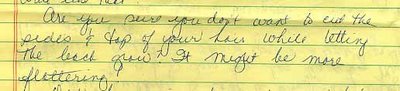 Are you sure you don't want to cut the
sides & top of your hair while letting
the back grow? It might be more
flattering!